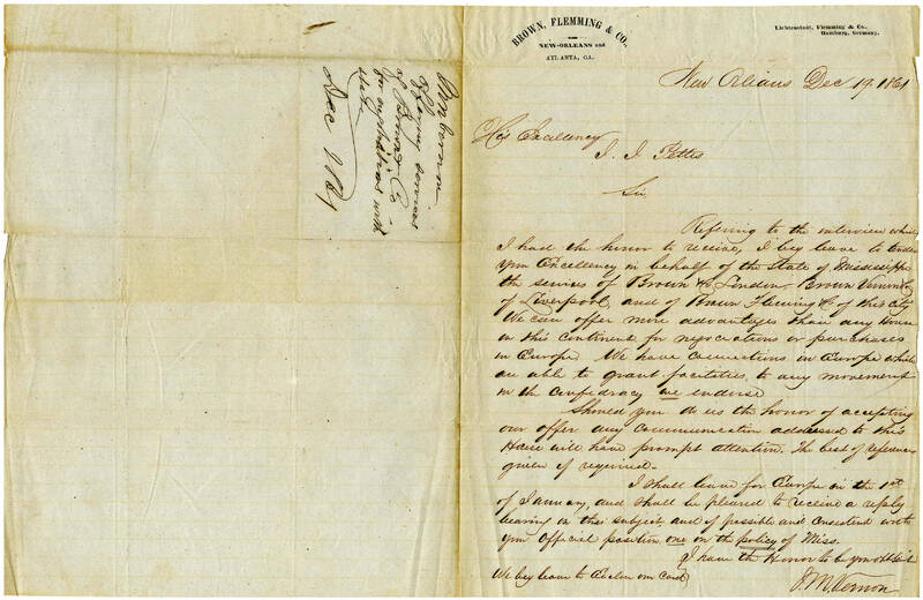 BROWN, FLEMMING & CO.,
NEW-ORLEANS and
ATLANTA, GA.
Lichtenstadt, Flemming & Co.,
Hamburg, Germany.
New Orleans Dec 19, 1861
His Excellency
J. J. Pettus
Sir
Refering to the interview which
I had the honor to receive, I beg leave to tender
your Excellency in behalf of the State of Mississippi
the services of Brown & Co London, Brown Vernon & Co
of Liverpool, and of Brown Fleming & Co of this City
We can offer more advantages than any House
on this continent for negociations or purchases
in Europe. We have connections in Europe which
are able to grant facilities to any movement
in the confedracy we endorse
Should you do us the honor of accepting
our offer any communication addressed to this
House will have prompt attention. The best of references
given if required.
I shall leave for Europe on the 1st
of January, and shall be pleased to receive a reply
bearing on this subject, and if possible and consistent with
your Official position one on the policy of Miss.
I have the Honor to be your
J. M. Vernon
We beg leave to Enclose our Card
Vernon
offering services
of Brown & Co
in
State
Dec 1861